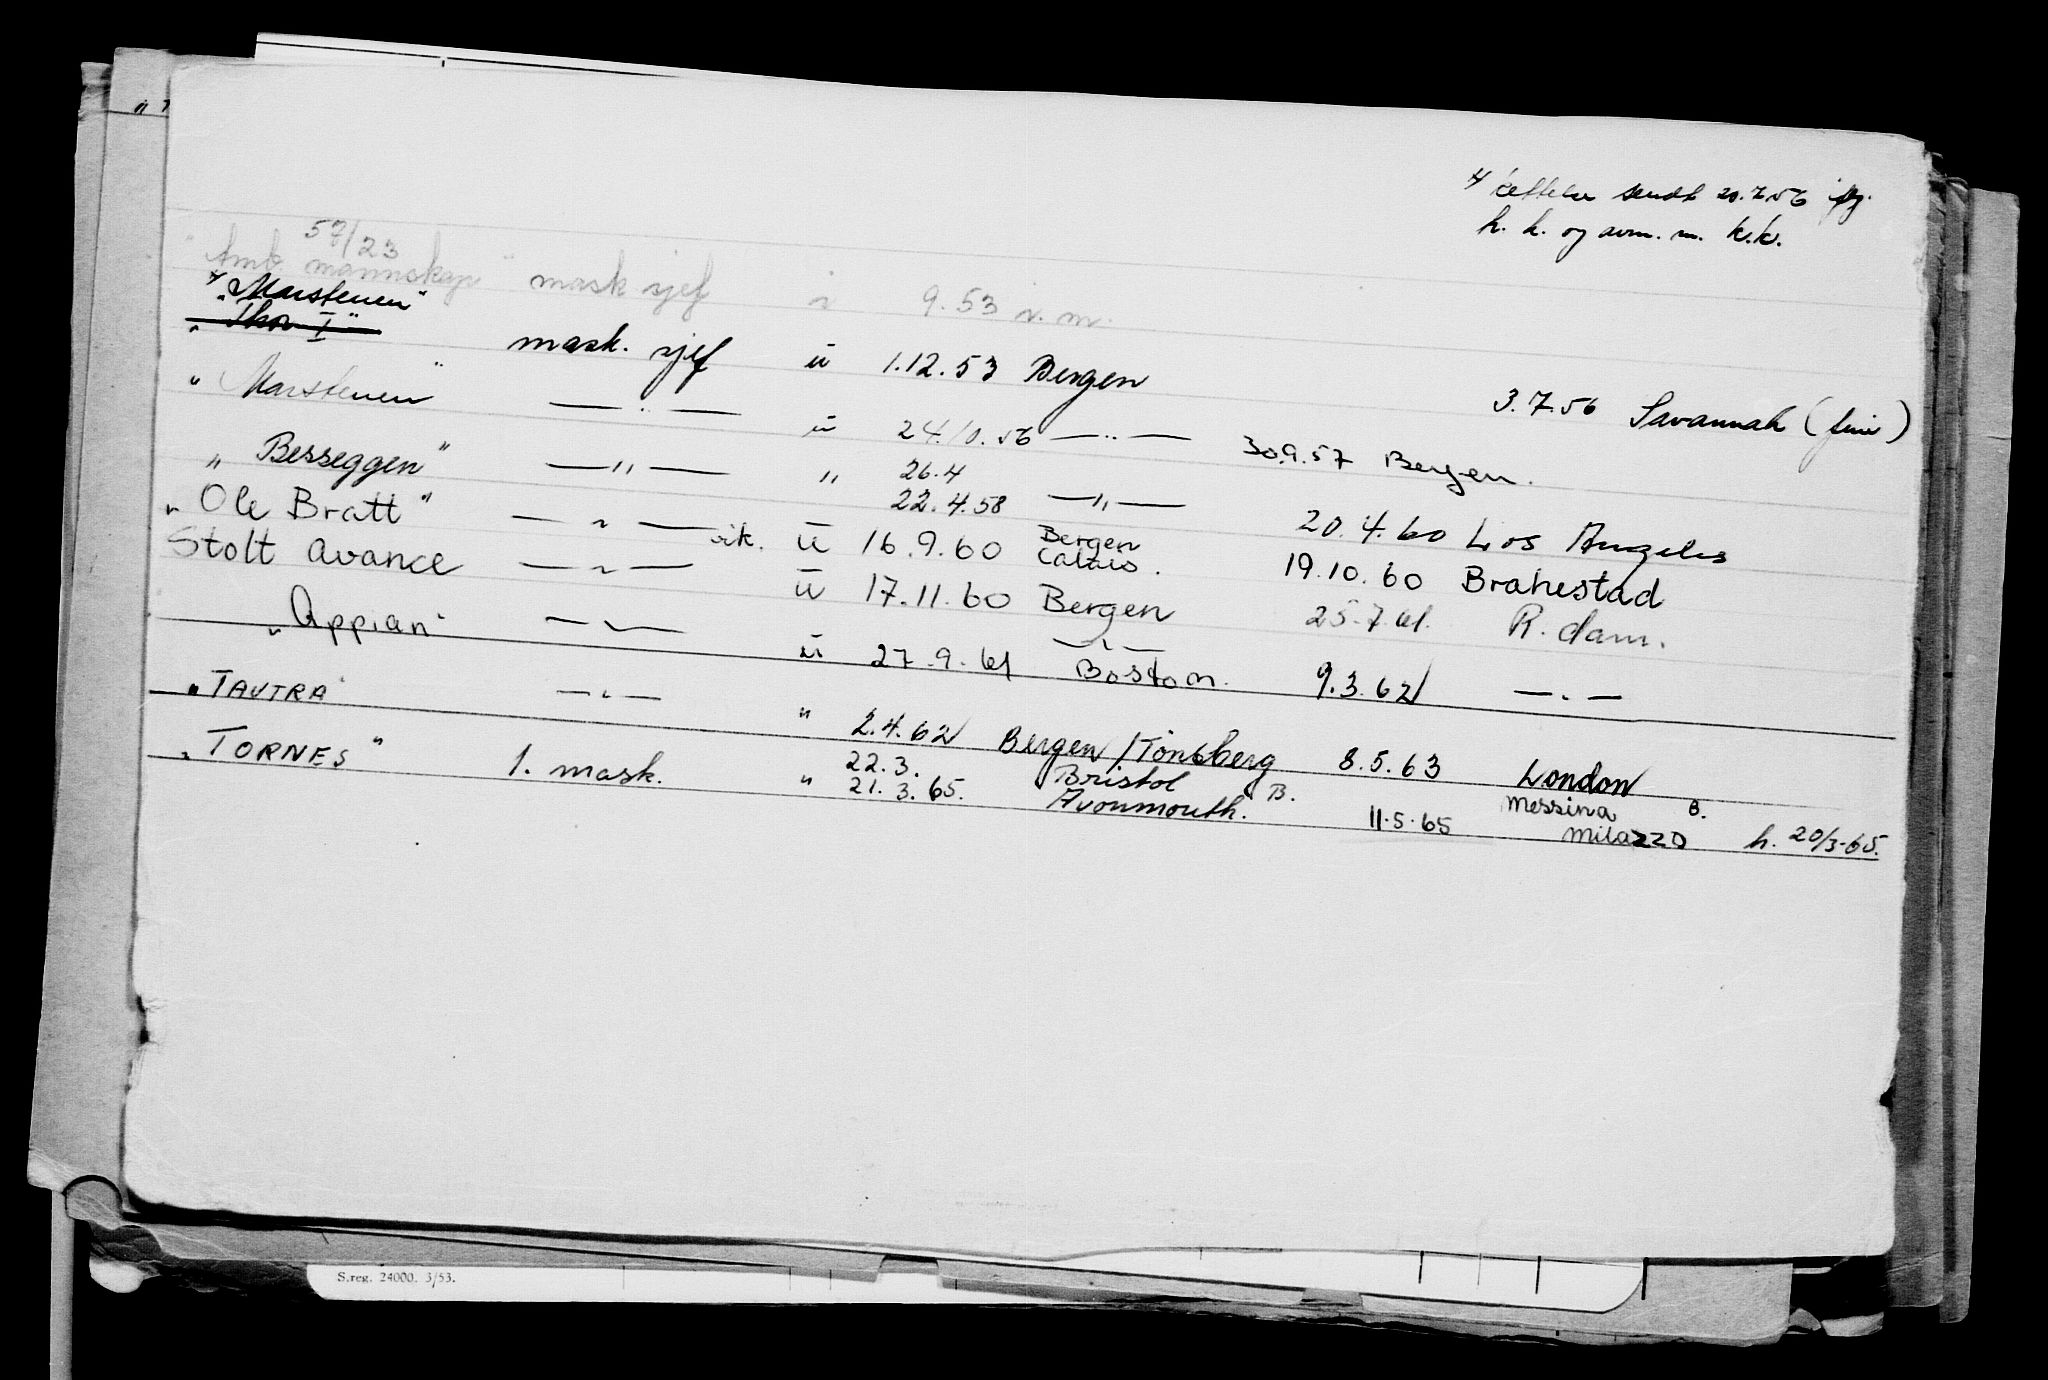 x/ sendt 20.7.56
h. h. og avm. m. k.k.
57/23
"Amb mannskap" mask sjef i 9.53 i. m.
x "Marstenen"
"Thor I" mask. sjef ü 1.12.53 Bergen 3.7.56 Savannah (ferie)
"Marstenen" —"— ü 24.10.56 —"— 30.9.57 Bergen.
"Besseggen" —"— " 26.4
22.4.58 —"— 20.4.60 Los Angeles
"Ole Bratt" —"— vik. ü 16.9.60 Bergen
Calais. 19.10.60 Brahestad
Stolt Avance —"— ü 17.11.60 Bergen 25.7.61. R.dam.
"Appian" —"— ü 27.9.61 —"—
Boston. 9.3.62 —"—
"TAUTRA" —"— " 2.4.62 Bergen/Tönsberg 8.5.63 London
"TORNES" 1. mask. " 22.3.
21.3.65. Bristol B.
Avonmouth. 11.5.65 Messina B.
Milazzo h. 20/3-65.
S.reg. 24000. 3/53.